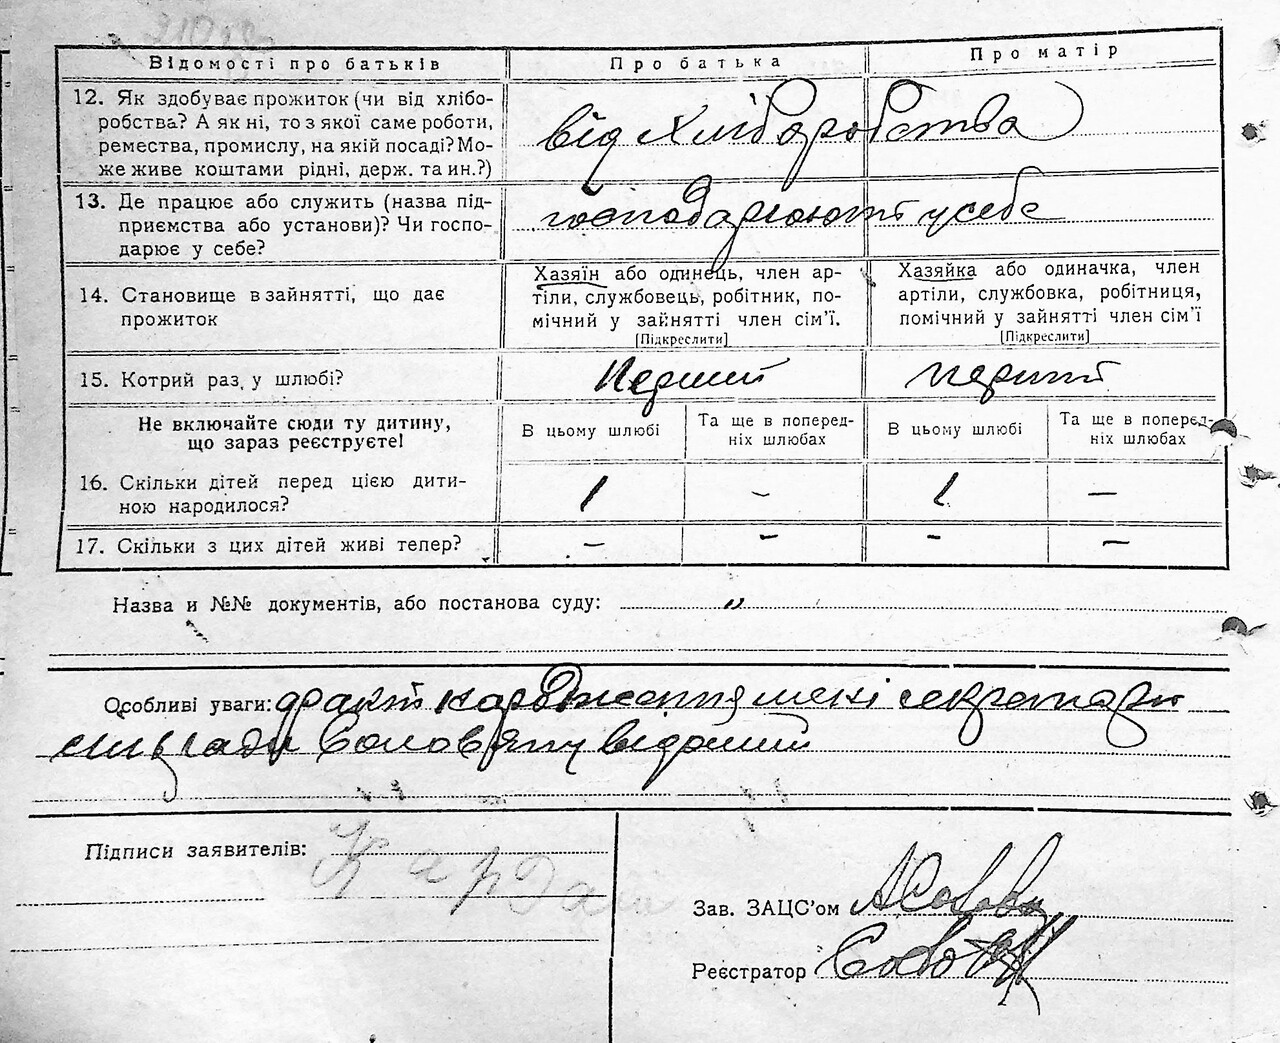 Відомості про батьків Про батька Про матір
12. Як здобуває прожиток (чи від хлібо-
робства? А як ні, то з якої саме роботи,
ремества, промислу, на якій посаді? Мо-
же живе коштами рідні, держ. та ин.?)
від хліборобства
13. Де працює або служить (назва під-
приємства або установи)? Чи госпо-
дарює у себе?
господарюють у себе
14. Становище в зайнятті, що дає
прожиток
Хазяїн або одинець, член ар-
тіли, службовець, робітник, по-
мічний у зайнятті член сім'ї.
[Підкреслити]
Хазяйка або одиначка, член
артіли, службовка, робітниця,
помічний у зайнятті член сім'ї
[Підкреслити]
15. Котрий раз, у шлюбі? Перший перший
Не включайте сюди ту дитину,
що зараз реєструєте!
В цьому шлюбі
Та ще в поперед-
ніх шлюбах
В цьому шлюбі
Та ще в поперед-
ніх шлюбах
16. Скільки дітей перед цією дити-
ною народилося?
1 – 1 –
17. Скільки з цих дітей живі тепер? – – – –
Назва и №№ документів, або постанова суду: "
Особливі уваги: факт народження мені секретарю
сільради відомий
Підписи заявителів: Кардаш
Зав. ЗАЦС'ом
Реєстратор